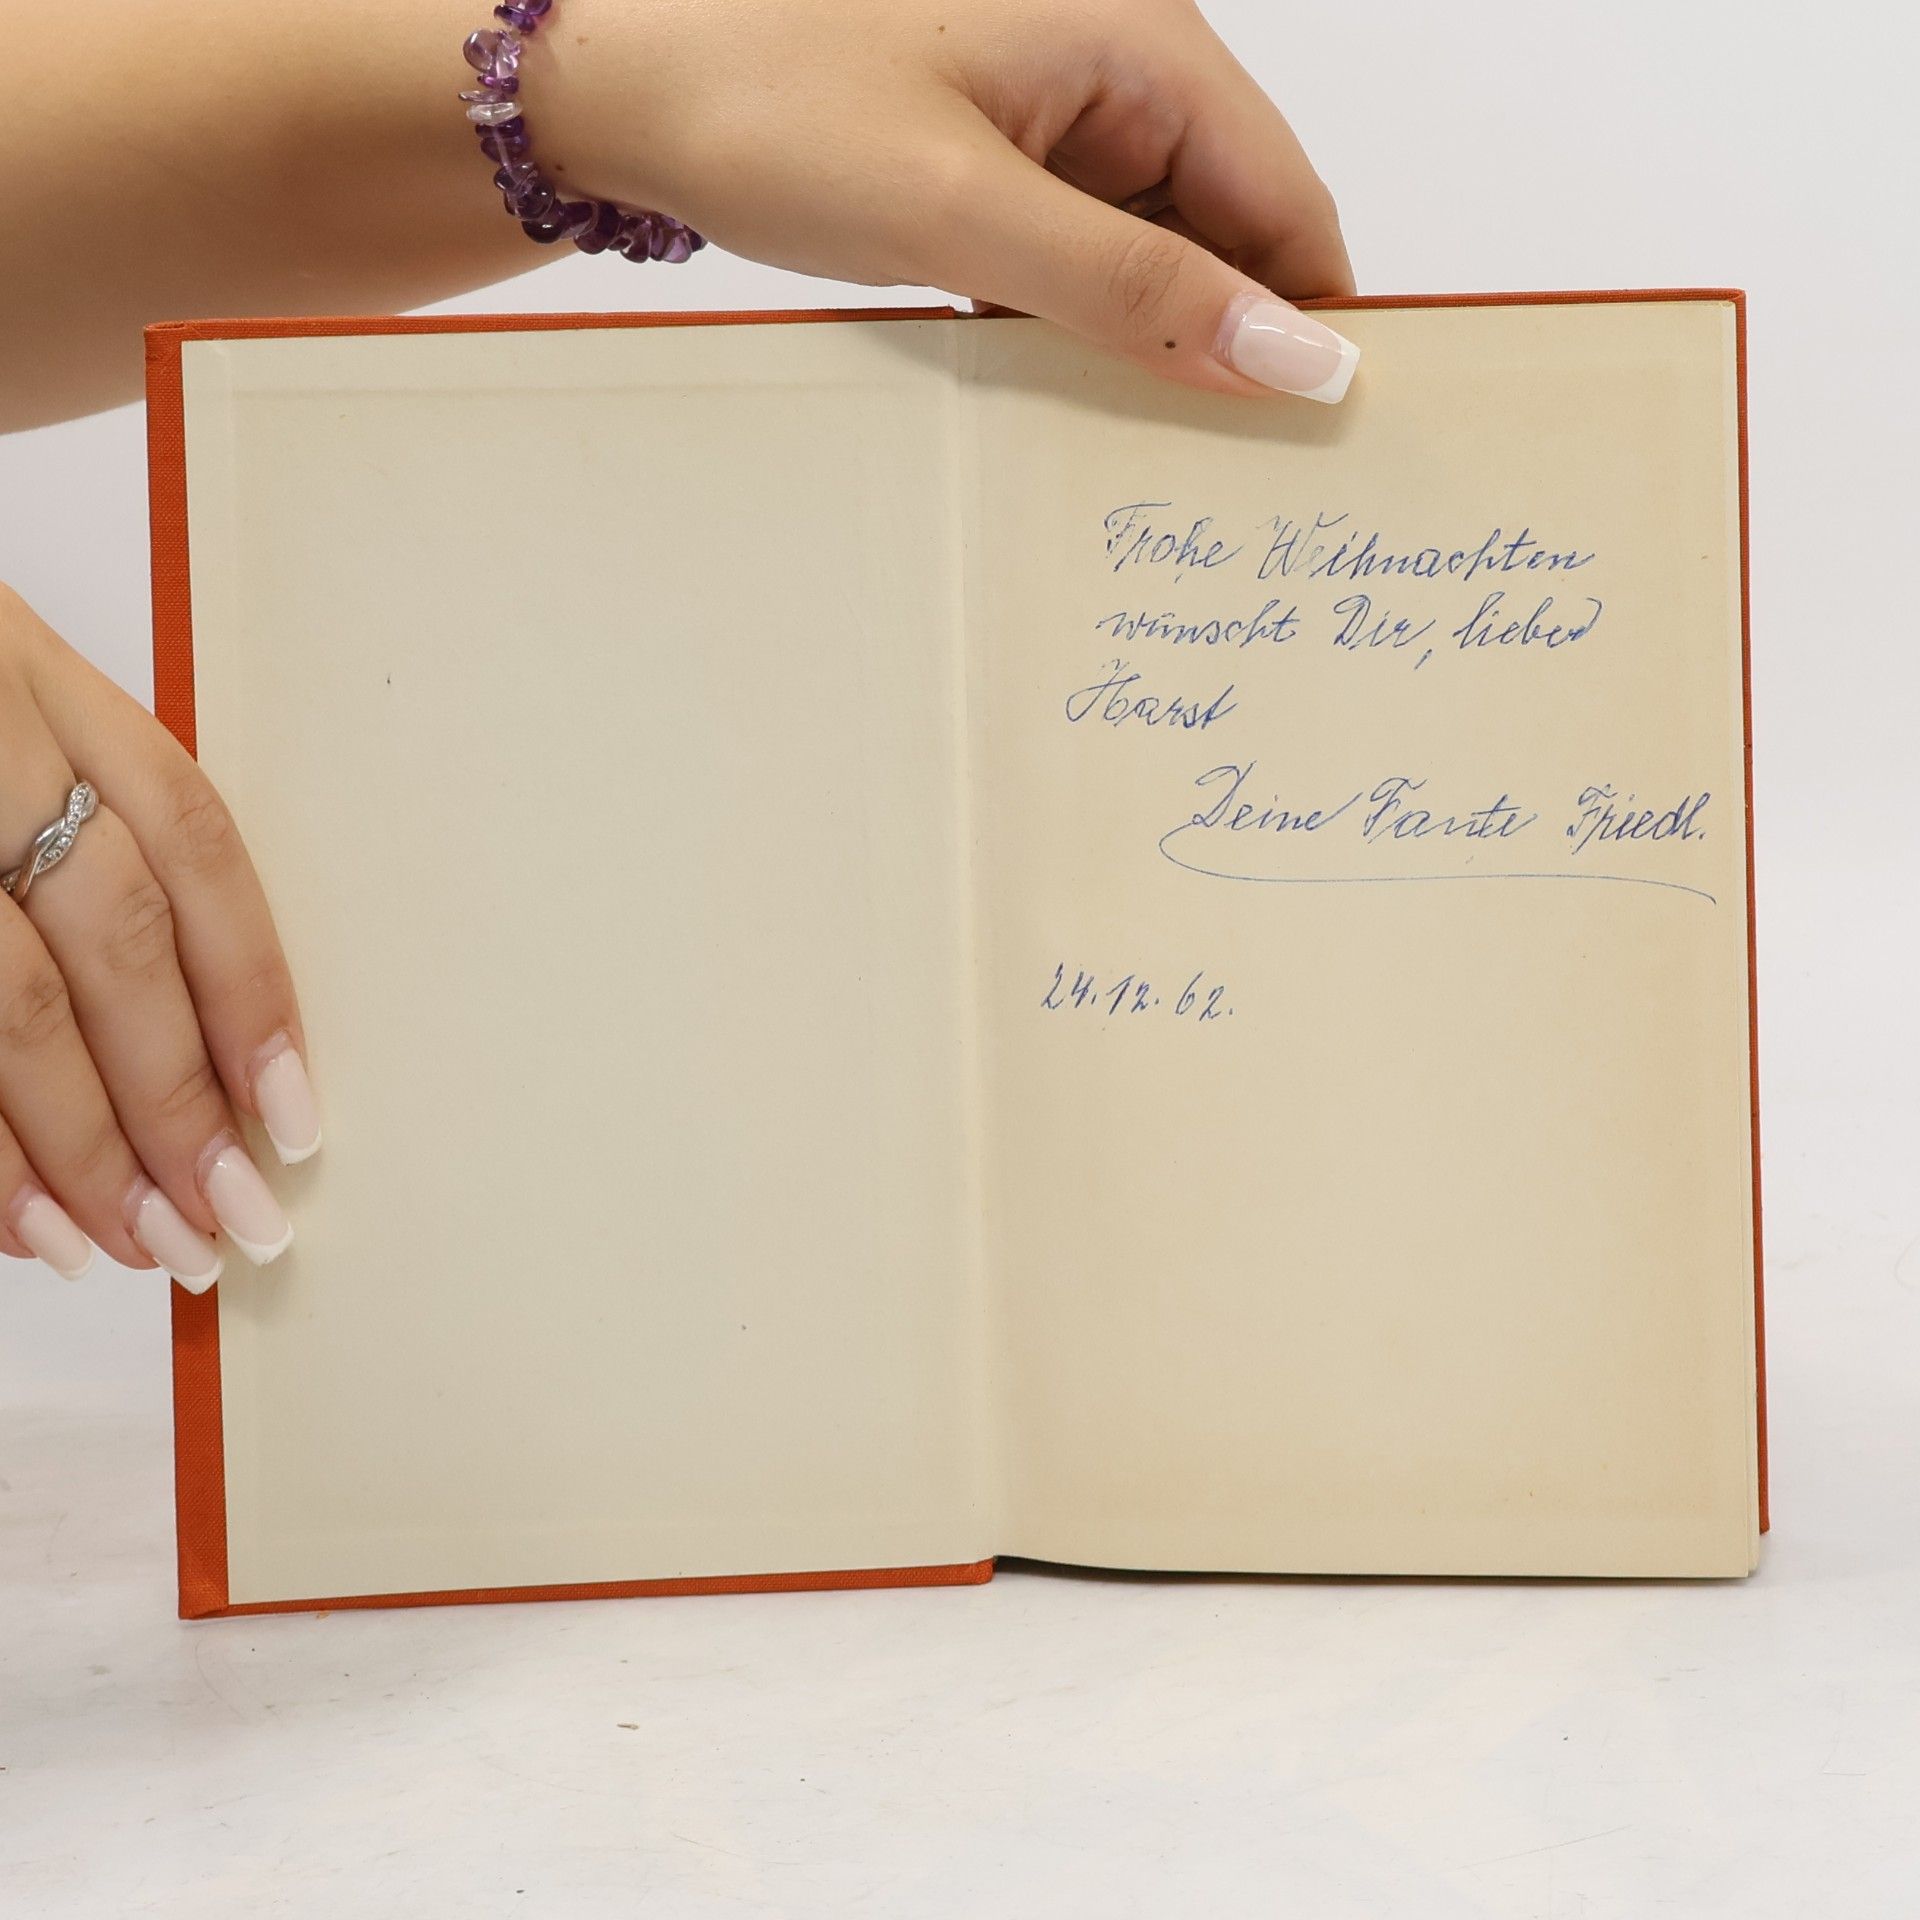 Frohe Weihnachten
wünscht Dir, lieber
Horst
Deine Tante Friedl.
24.12.62.